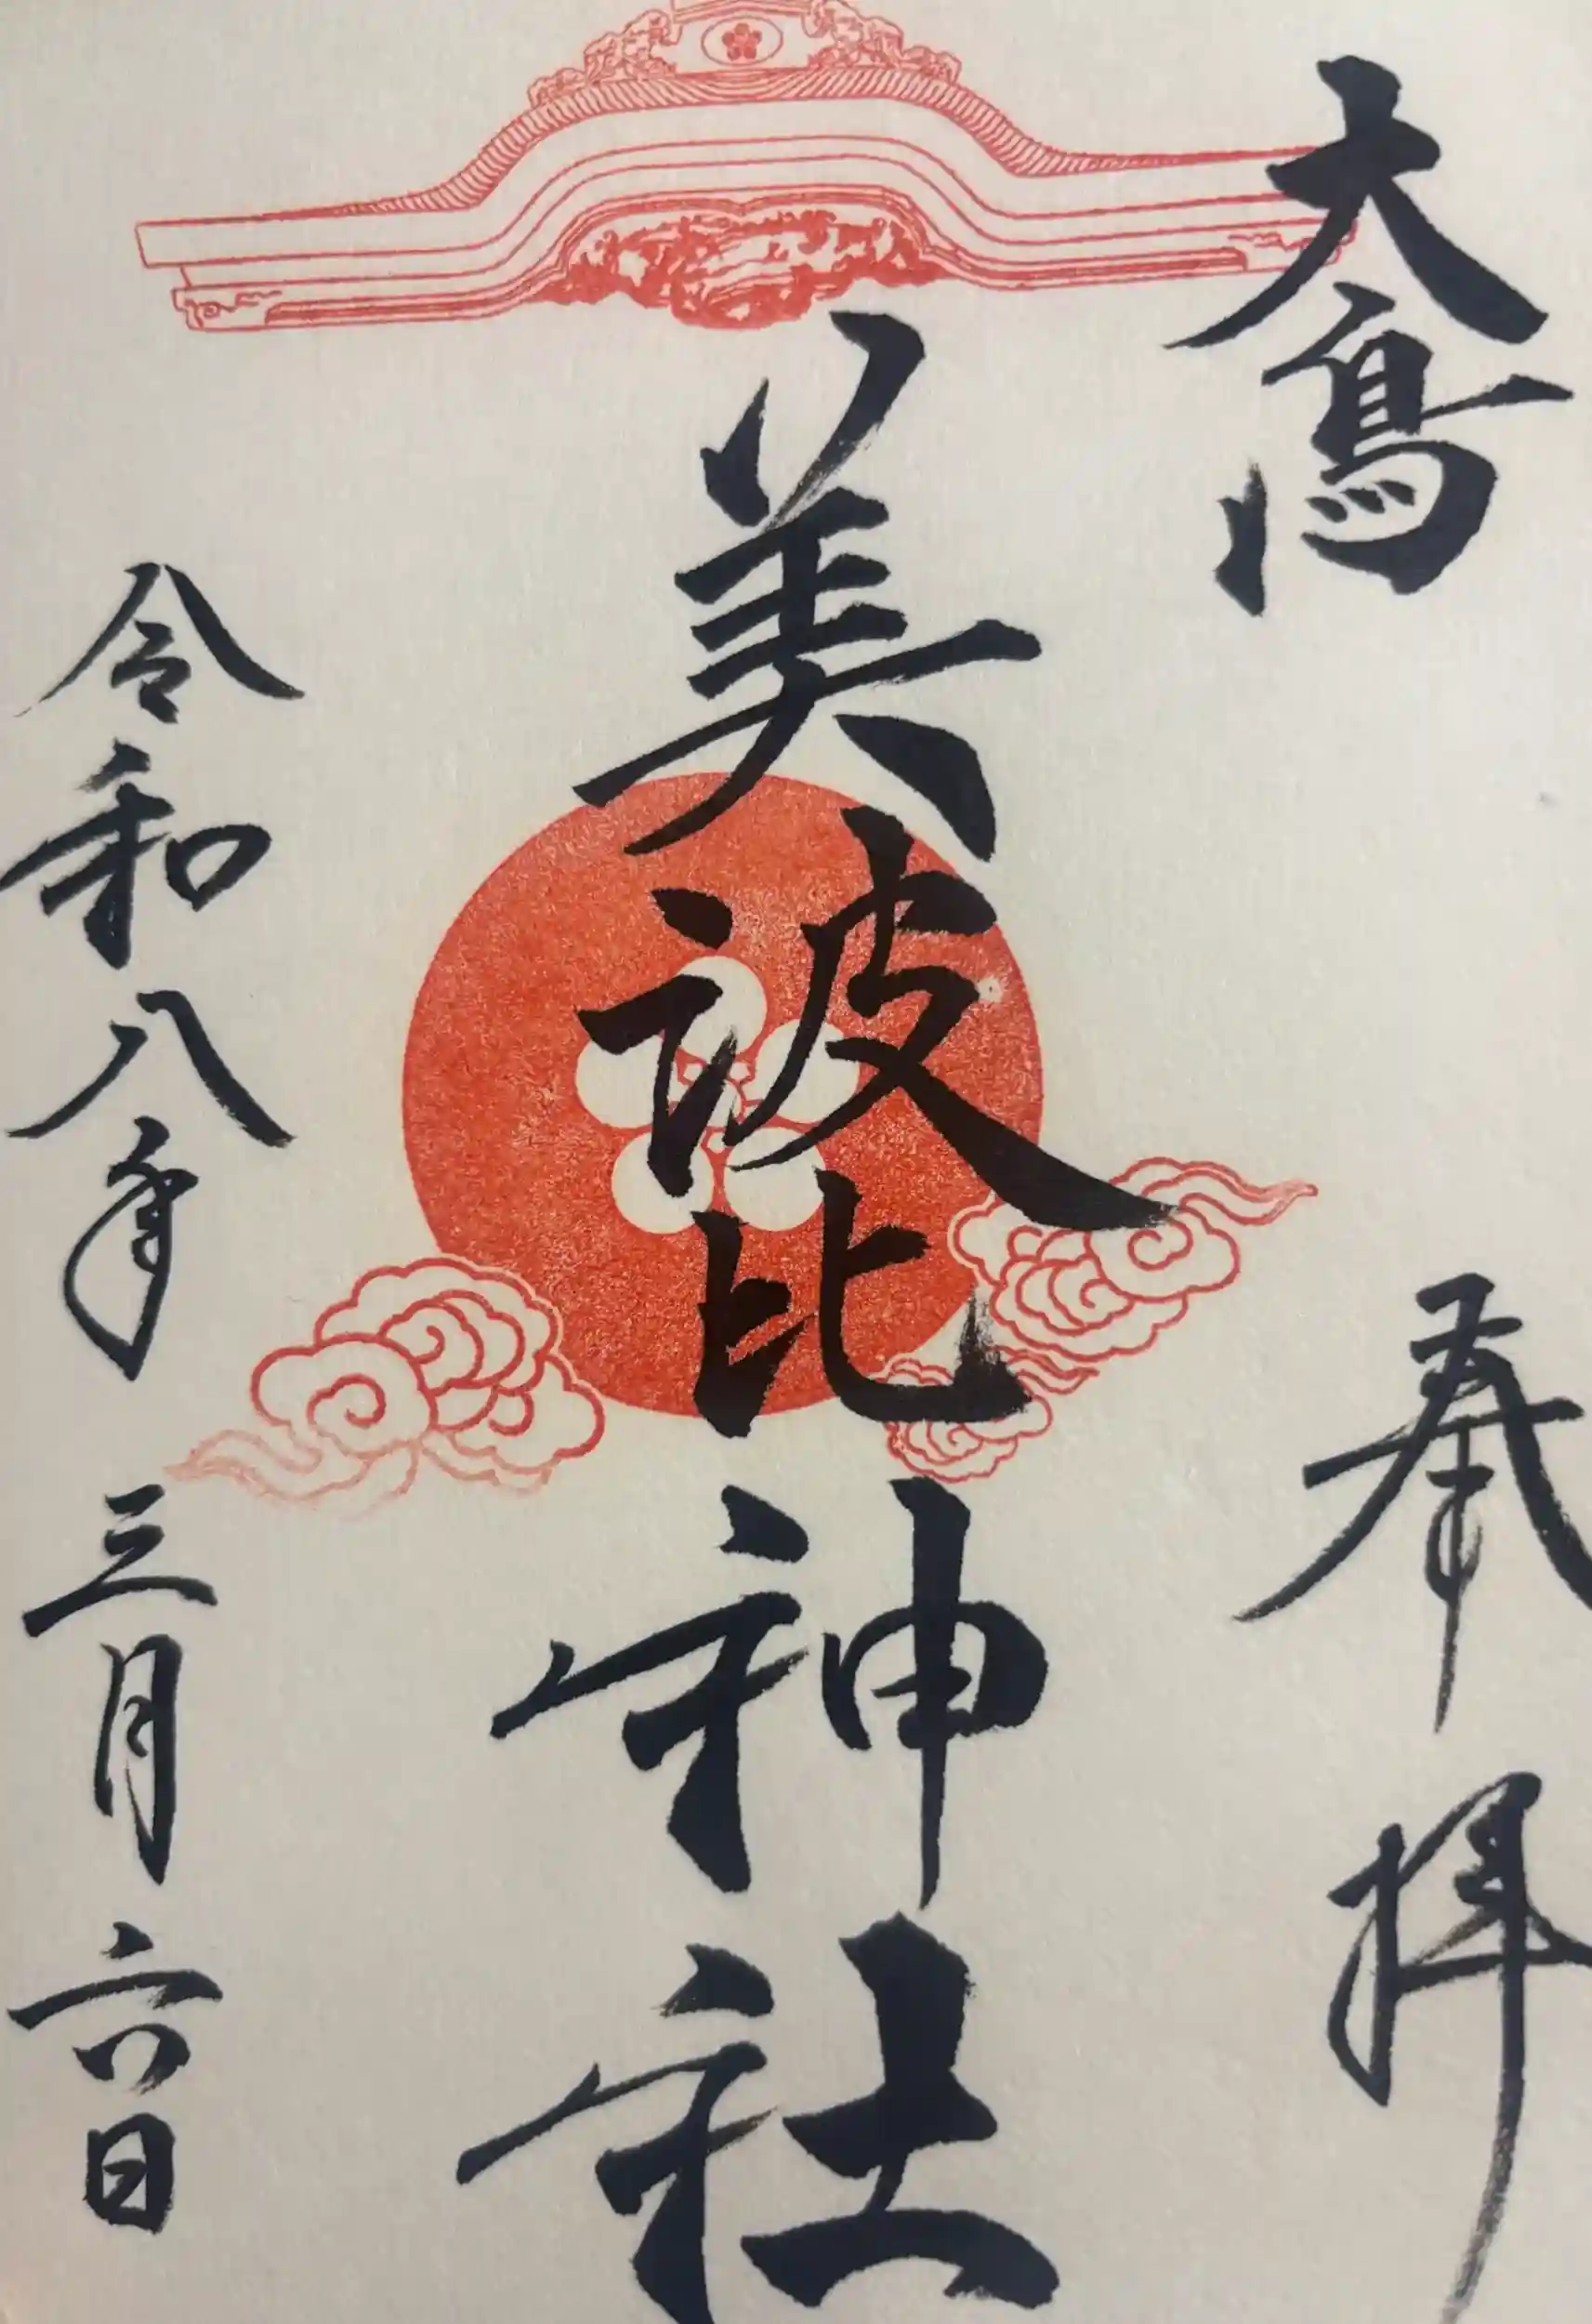 大鳥
奉拝
美波比神社
令和八年三月六日